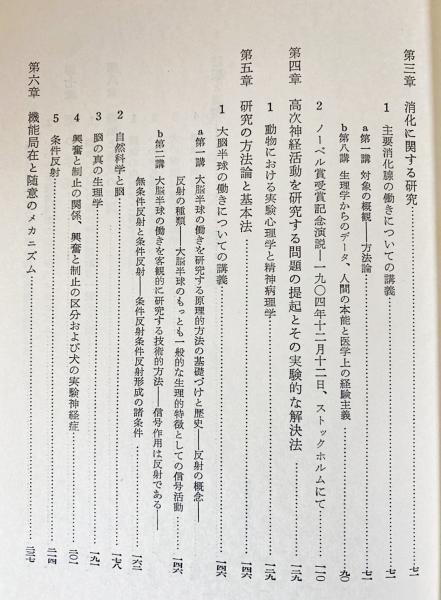 第三章 消化に関する研究……七一
1 主要消化腺の働きについての講義……七一
a 第一講 対象の概観――方法論……七一
b 第八講 生理学からのデータ、人間の本能と医学上の経験主義……九〇
2 ノーベル賞受賞記念演説――一九〇四年十二月十二日、ストックホルムにて……一一〇
第四章 高次神経活動を研究する問題の提起とその実験的な解決法……一二九
1 動物における実験心理学と精神病理学……一二九
第五章 研究の方法論と基本法……一四六
1 大脳半球の働きについての講義……一四六
a 第一講 大脳半球の働きを研究する原理的方法の基礎づけと歴史――反射の概念――
反射の種類――大脳半球のもっとも一般的な生理的特徴としての信号活動……一四六
b 第二講 大脳半球の働きを客観的に研究する技術的方法――信号作用は反射である――
無条件反射と条件反射――条件反射形成の諸条件……一六二
2 自然科学と脳……一七八
3 脳の真の生理学……一九一
4 興奮と制止の関係、興奮と制止の区分および犬の実験神経症……二〇一
5 条件反射……二一四
第六章 機能局在と随意のメカニズム……二三七